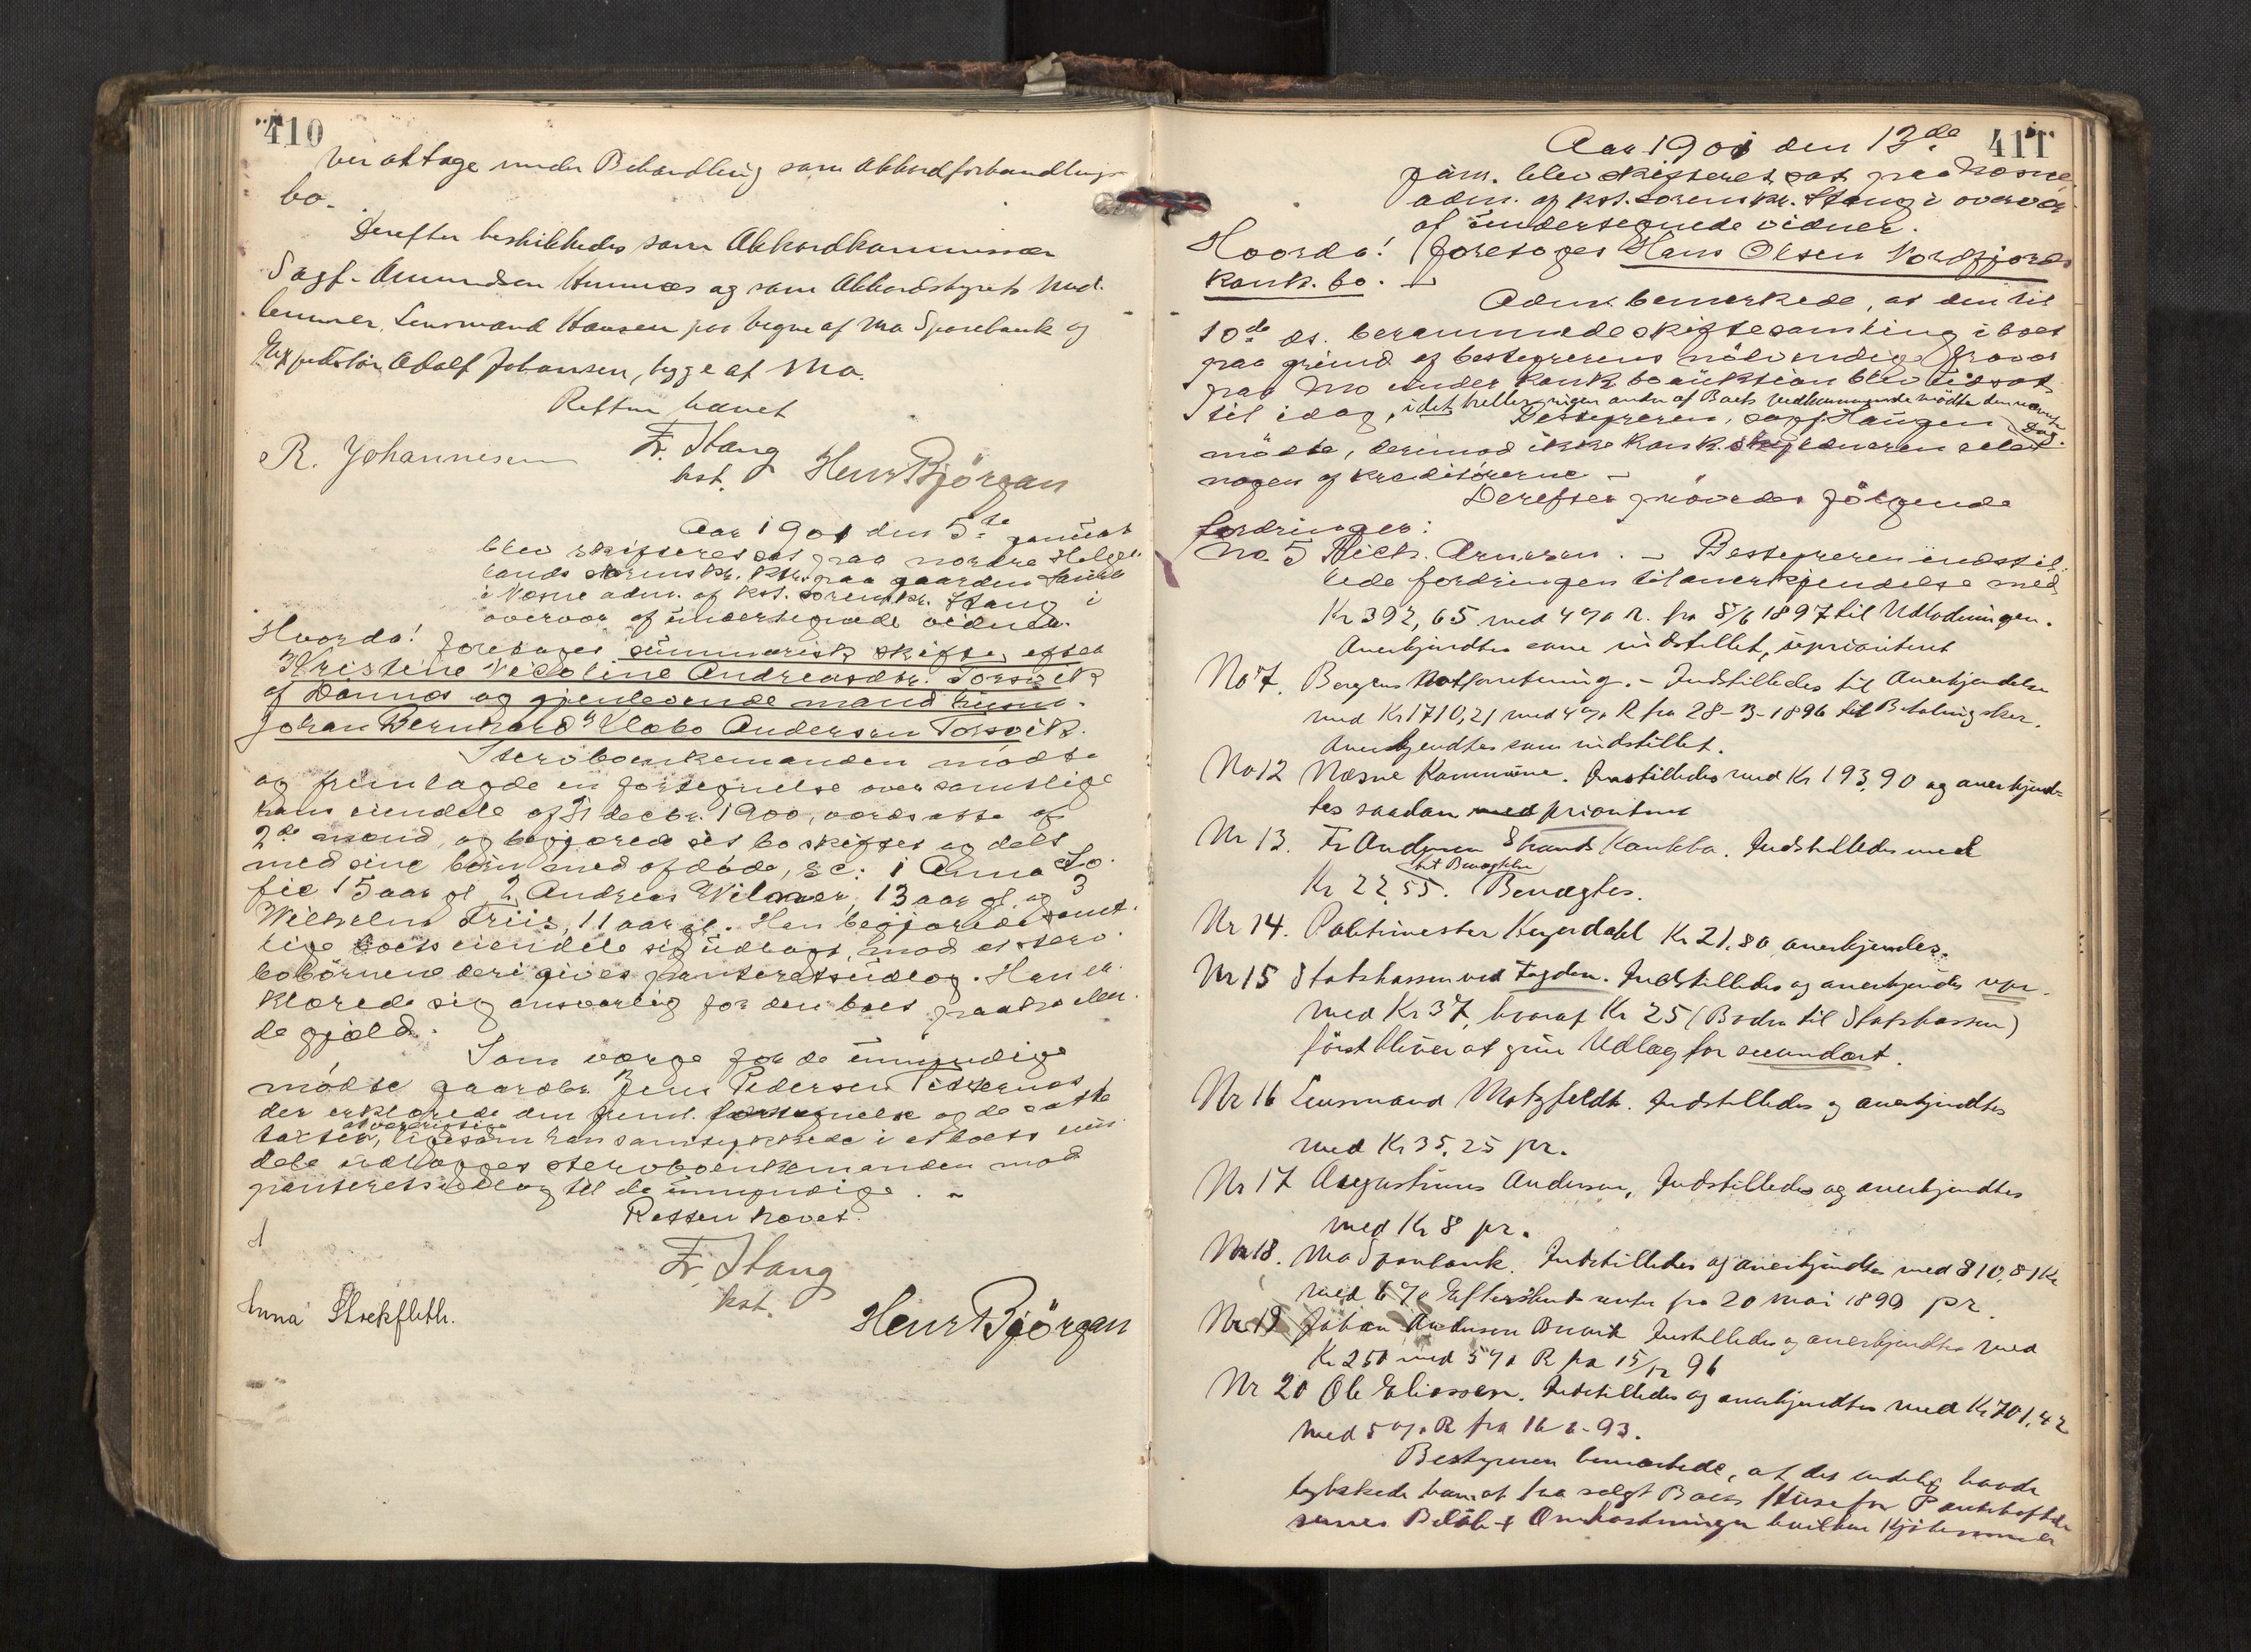 410
ver at tage under Behandling som Akkordforhandlings
bo.
Derefter beskikkedes som Akkordkommissær
Sagf. Amundsen Hemnæs og som Akkordstyrets Med-
lemmer, Lensmand Hansen paa vegne af Mo Sparebank og
Expeditør Adolf Johansen, begge af Mo.
Retten hævet
R. Johannesen Fr. Stang Henr Bjørgan
kst.
Aar 1901 den 5te januar
blev skifteret sat paa nordre Helge-
lands sorenskr. ktr. paa gaarden
i Næsne adm. af kst. sorenskr. Stang i
overvær af undertegnede vidner.
Hvorda! foretoges summarisk skifte efter
Kristine Nicoline Andreasdtr. Torsvik
af Dønnes og gjenlevende mand
Johan Bernhard Klæbo Andersen Torsvik.
Stervboenkemanden mødte
og fremlagde en fortegnelse over samtlige
hans eiendele af 31 decbr. 1900, værdsatte af
2de mænd, og begjærede sit bo skiftet og delt
med sine børn med afdøde, sc: 1 Anna So-
fie 15 aar gl, 2 Andreas Wilmer, 13 aar gl. og 3
Wilhelm Friis, 11 aar gl. Han begjærede samt-
lige boets eiendele sig udlagt, mod at sterv-
bobørnene deri gives panteretsudlæg. Han er-
klærede sig ansvarlig for den boet paahvilen-
de gjæld.
Som værge for de umyndige
mødte gaardbr. Jens Pedersen
der erklærede den freml. fortegnelse og de satte
takster, at være rigtige ligesom han samtykkede i at boets eien-
dele udlægges stervboenkemanden mod
panteretsudlæg til de umyndige. -
Retten hævet.
Fr. Stang
kst.
Anna Stockfleth. Henr Bjørgan
411
Aar 1901 den 12de
jan. blev skifteret sat paa Næsne
adm. af kst. sorenskr. Stang i overvær
af undertegnede vidner.
Hvorda! foretoges Hans Olsen Nordfjords
konk. bo. -
Adm. bemerkede, at den til
10de ds. berammede skiftesamling i boet
paa grund af bestyrerens nødvendige fravær
paa Mo under konk. boauktion blev udsat
til idag, idet heller ingen anden af Boets Vedkommende mødte den nævnte Dag.
Bestyreren, sagf. Haugen
mødte, derimod ikke konk. skyldneren eller
nogen af kreditorerne -
Derefter prøvedes følgende
fordringer:
No 5 Mich. Arnesen. - Bestyreren indstil-
lede fordringen til anerkjendelse med
Kr 392,65 med 4 % R. fra 5/6 1897 til Udlodningen.
Anerkjendtes som indstillet, uprioriteret
No 7. Bergens Notforretning. - Indstilledes til Anerkjendelse
med Kr 1710,21 med 4 % R fra 28-3-1896 til Betaling sker.
Anerkjendtes som indstillet.
No 12 Næsne Kommune. Indstilledes med Kr 193,90 og anerkjend-
tes saadan med prioriteret
Nr 13. Fr Andersen Strands Konkbo. Indstilledes med
Kr 22,55. til Benægtelse Benægtes.
Nr 14. Politimester Kjerdahl Kr 21,80 anerkjendes.
Nr 15 Statskassen ved Fogden. Indstilledes og anerkjendes upr.
med Kr 37, hvoraf Kr 25 (Bøder til Statskassen)
først bliver at give Udlæg for secundært.
Nr 16 Lensmand Motzfeldt. Indstilledes og anerkjendtes
med Kr 35,25 pr.
Nr 17 Augustinus Andersen, Indstilledes og anerkjendtes
med Kr 8 pr.
Nr 18. Mo Sparebank. Indstilledes og anerkjendtes med 810,81 Kr
med 6 % Efterskudsrenter fra 20 mai 1899 pr
Nr 19 Johan Andersen Indstilledes og anerkjendtes med
Kr 250 med 5 % R fra 15/12 96
Nr 20 Ole Eliassen. Indstilledes og anerkjendtes med Kr 701,42
med 5 % R fra 16-6-93.
Bestyreren bemærkede, at det endelig havde
lykkedes ham at faa solgt Boets Huse for Pantehæftel-
sernes Beløb + Omkostninger hvilken Kjøbesum er